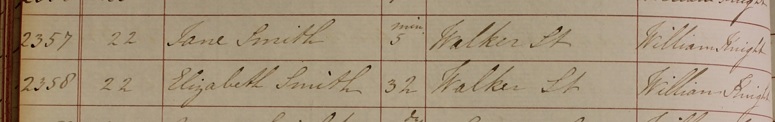 2357 22 Jane Smith 5 min Walker St William Knight
2358 22 Elizabeth Smith 32 Walker St William Knight